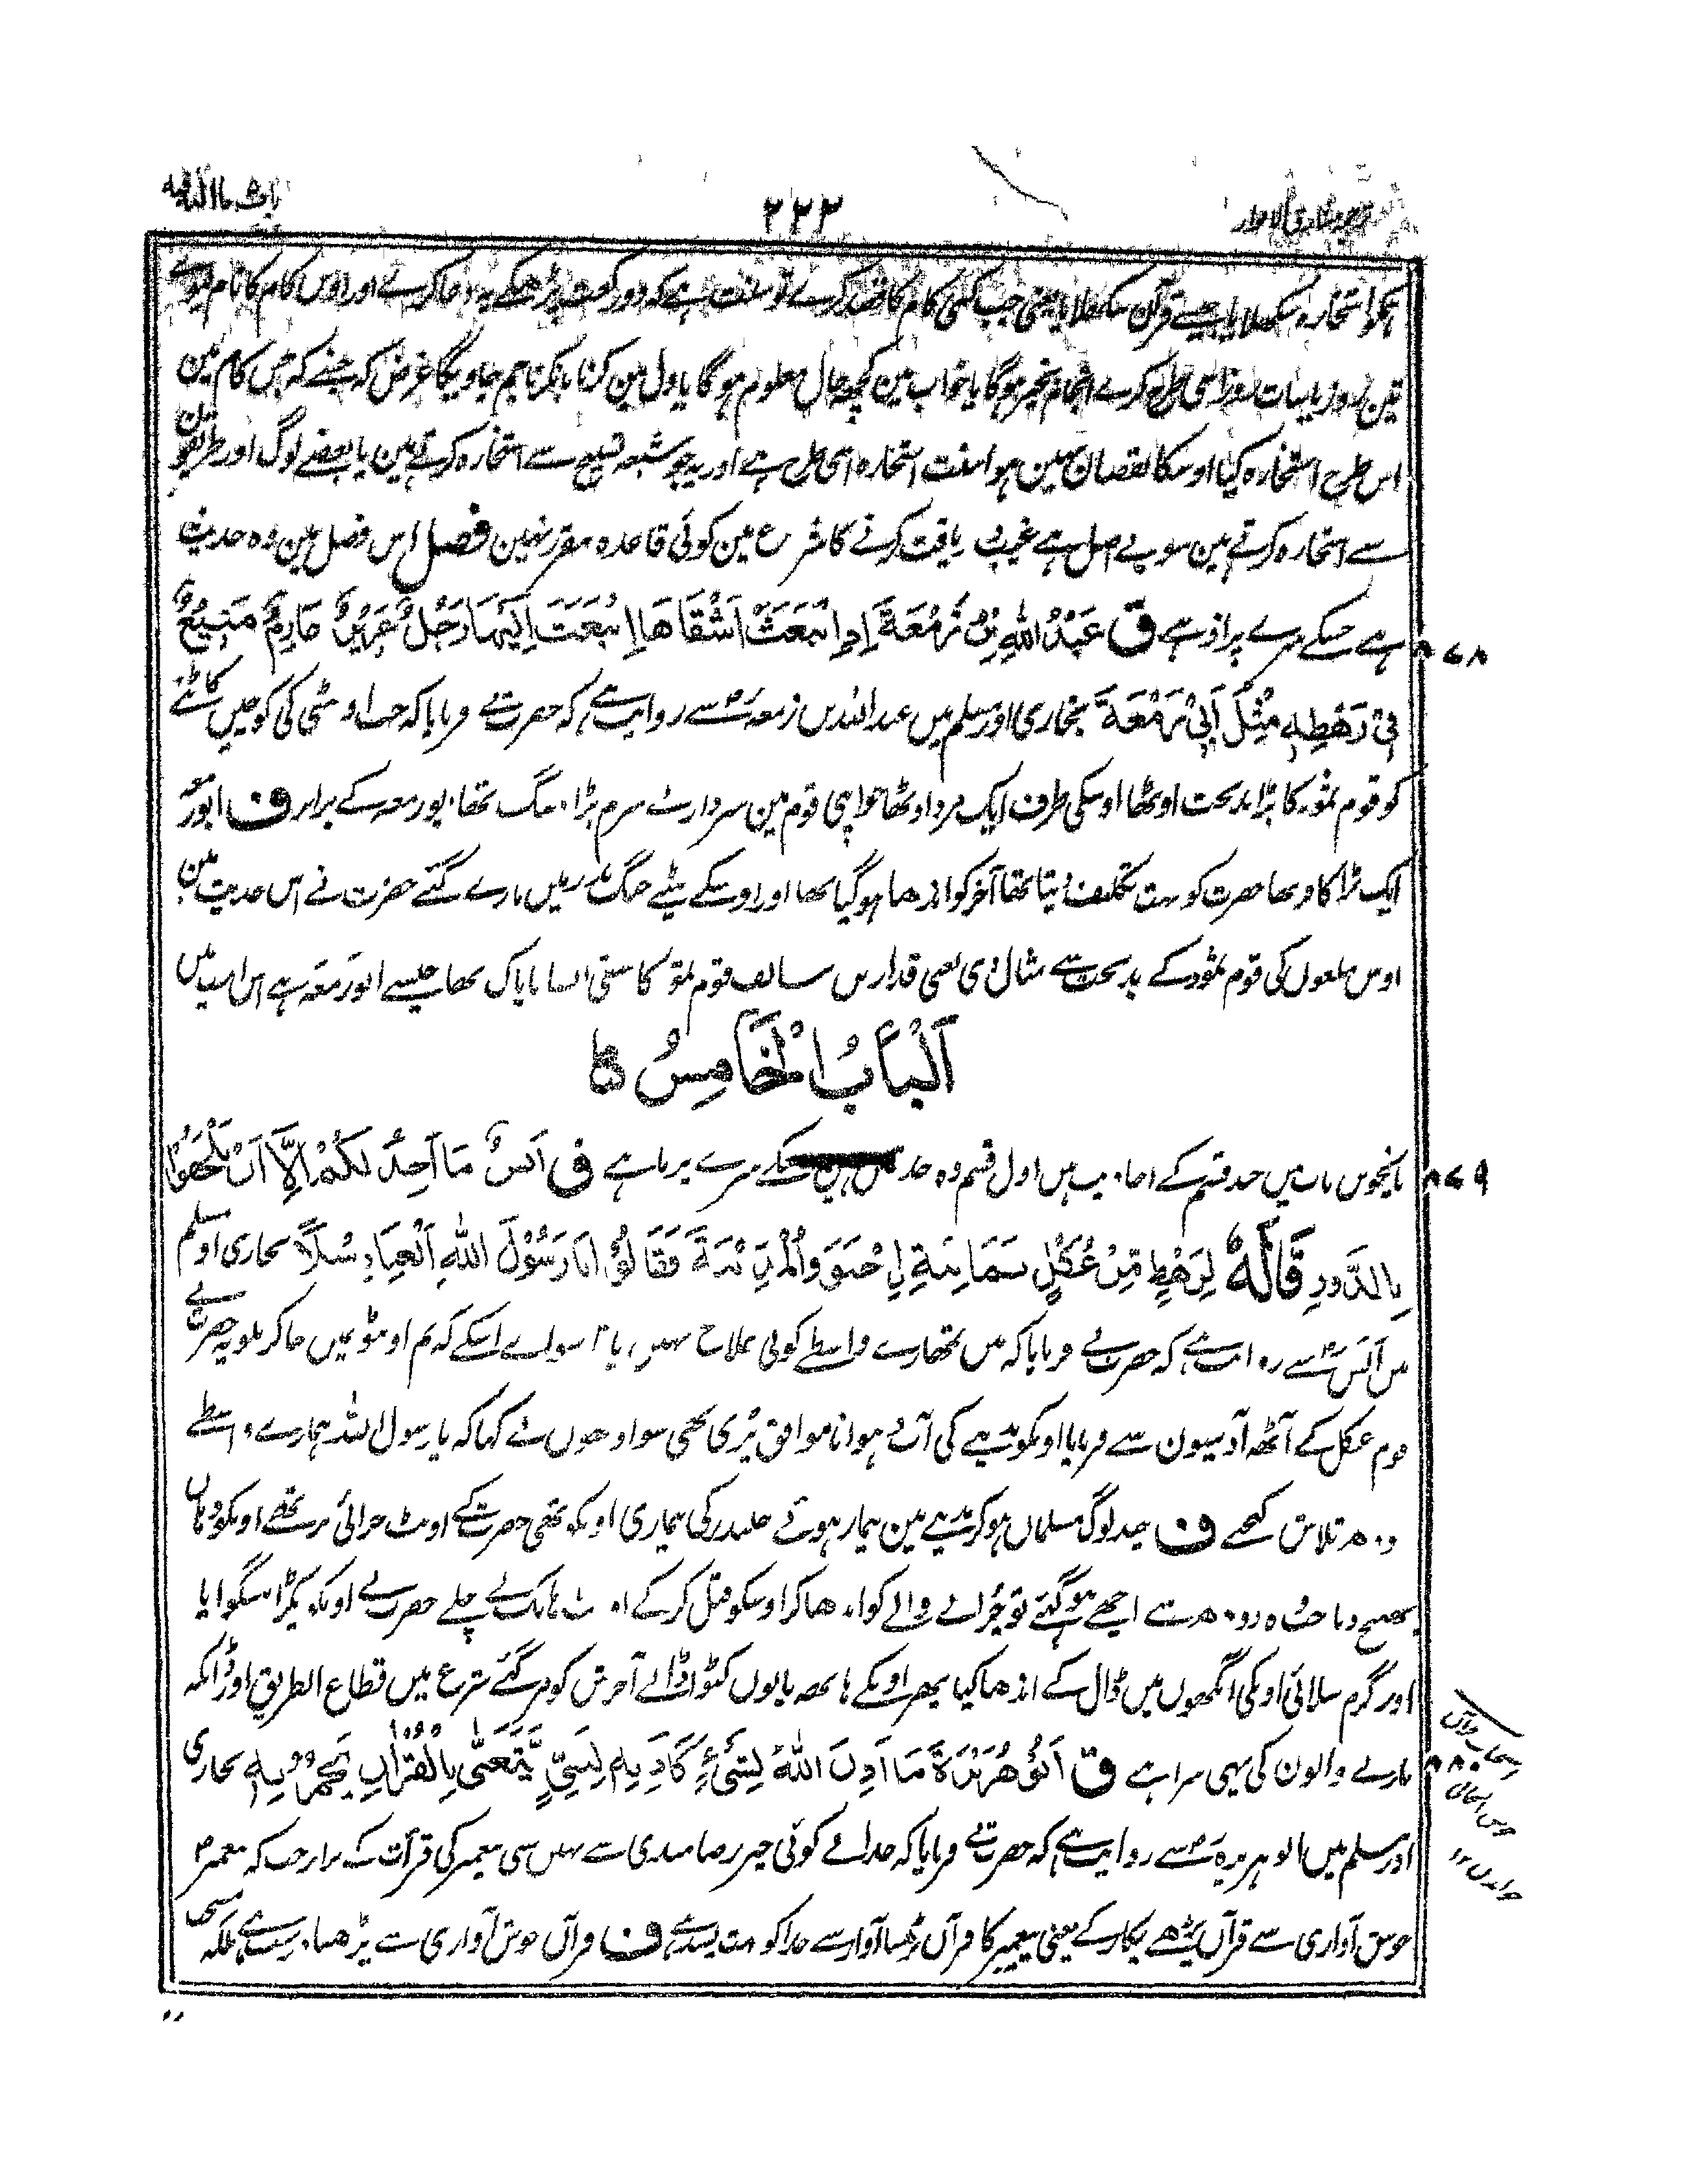 ۲۲۳
ہمکو استخارہ سکھلایا جیسے قرآن سکھلایا یعنی جب کسی کام کا قصد کرے تو سنت ہے کہ دو رکعت پڑھکے یہ دعا کرے اور اوس کام کا نام لیوے
تین روز یا سات روز اسی طرح کرے انجام بخیر ہوگا یا خواب مین کچھ حال معلوم ہوگا یا دل مین کرنا یا نکرنا جم جاویگا غرض کہ جسنے کہ جس کام مین
اس طرح استخارہ کیا اوسکا نقصان نہین ہوا سنت استخارہ اسی طرح ہے اور یہ جو شیعہ تسبیح سے استخارہ کرتے ہین یا بعضے لوگ اور طریقون
سے استخارہ کرتے ہین سو بے اصل ہے غیب دریافت کرنے کا شرع مین کوئی قاعدہ مقرر نہین فصل اس فصل مین وہ حدیث
ہے جسکے سرے پر اذ ہے ق عَبْدُ اللهِ بْنُ زَمْعَةَ اِذِ انْبَعَثَ اَشْقَاهَا اِنْبَعَثَ اِلَيْهَا رَجُلٌ عَزِيْزٌ عَارِمٌ مَنِيْعٌ ۸۷۸
فِيْ رَهْطِهٖ مِثْلُ اَبِيْ زَمْعَةَ بخاری اور مسلم میں عبد اللہ بن زمعہ رض سے روایت ہے کہ حضرت نے فرمایا کہ جب اونٹنی کی کوچیں کاٹنے
کو قوم ثمود کا بڑا بدبخت اوٹھا اوسکی طرف ایک مرد اوٹھا جو اپنی قوم مین سردار بے شرم بڑا تھا ابو زمعہ کے برابر ف ابو زمعہ
ایک بڑا کافر تھا حضرت کو بہت تکلیف دیتا تھا آخر کو اندھا ہو گیا تھا اور اوسکے بیٹے جنگ بدر میں مارے گئے حضرت نے اس حدیث مین
اوس ملعون کی قوم ثمود کے بدبخت سے مثال دی یعنی قدار بن سالف قوم ثمود کا شقی ایسا ناپاک تھا جیسے ابو زمعہ ہے اس امت میں
اَلْبَابُ الْخَامِسُ
پانچویں باب میں چند قسم کے احادیث ہیں اول قسم وہ حدیثیں ہیں جنکے سرے پر ما ہے ق اَنَسٌ مَا اَجِدُ لَكُمْ اِلَّا اَنْ تَلْحَقُوْا ۸۷۹
بِالذَّوْدِ قَالَهٗ لِرَهْطٍ مِّنْ عُكْلٍ ثَمَانِيَةٍ اِجْتَوَوُا الْمَدِيْنَةَ فَقَالُوْا يَا رَسُوْلَ اللهِ اَبْغِنَا رِسْلًا بخاری اور مسلم
میں انس رض سے روایت ہے کہ حضرت نے فرمایا کہ میں تمھارے واسطے کوئی علاج نہیں پاتا سوائے اسکے کہ تم اونٹوں میں جا کر ملو یہ حضرت نے
قوم عکل کے آٹھ آدمیون سے فرمایا اونکو مدینے کی آب و ہوا ناموافق پڑی تھی سو اونھوں نے کہا کہ یا رسول اللہ ہمارے واسطے
دودھ تلاش کیجے ف چند لوگ مسلمان ہو کر مدینے مین بیمار ہوئے جلندر کی بیماری اونکو تھی حضرت کے اونٹ چرائی پر تھے اونکو وہاں
بھیج دیا جب وہ دودھ سے اچھے ہو گئے تو چرانے والے کو اندھا کر اوسکو قتل کر کے اونٹ ہانک لے چلے حضرت نے اونکو پکڑا منگوایا
اور گرم سلائی اونکی آنکھوں میں ڈال کے اندھا کیا پھر اونکے ہاتھ پاؤں کٹوا ڈالے آخرش کو مر گئے شرع میں قطاع الطریق اور ڈاکہ
مارنے والون کی یہی سزا ہے ق اَبُوْ هُرَيْرَةَ مَا اَذِنَ اللهُ لِشَيْءٍ كَاَذَنِهٖ لِنَبِيٍّ يَّتَغَنّٰى بِالْقُرْاٰنِ يَجْهَرُ بِهٖ بخاری ۸۸۰
اور مسلم میں ابو ہریرہ رض سے روایت ہے کہ حضرت نے فرمایا کہ خدا نے کوئی چیز رضامندی سے نہیں سنی پیغمبر کی قرآت کے برابر جب کہ پیغمبر
خوش آوازی سے قرآن پڑھے پکار کے یعنی پیغمبر کا قرآن پڑھنا آواز سے خدا کو بہت پسند ہے ف قرآن خوش آوازی سے پڑھنا درست ہے بلکہ